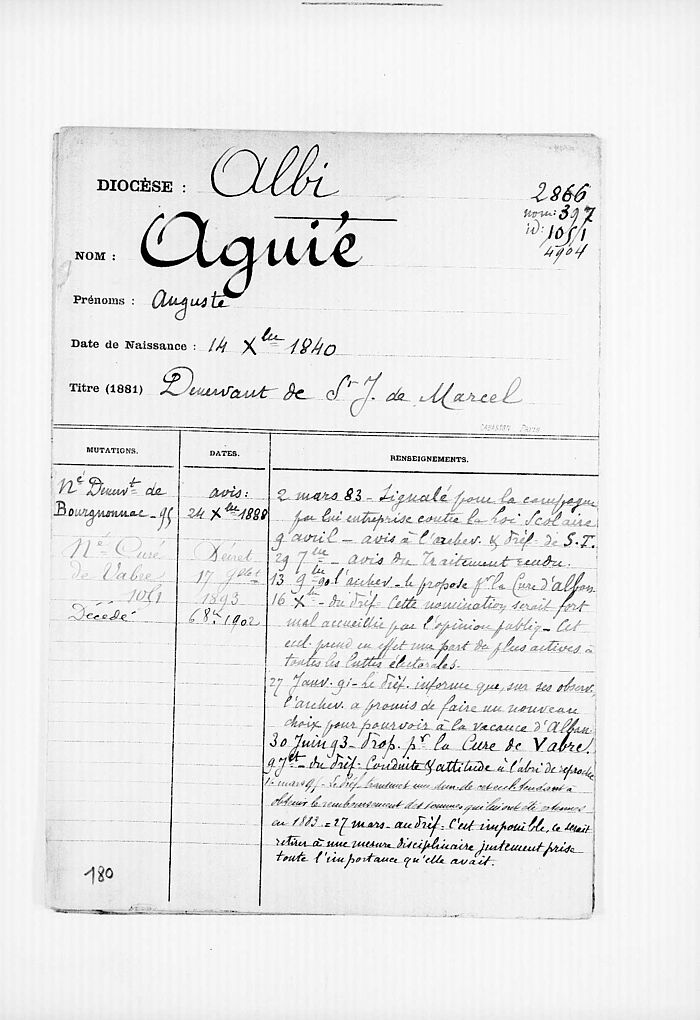 DIOCÈSE : Albi
2866
nom: 397
id: 1051
4904
NOM : Aguié
Prénoms : Auguste
Date de Naissance : 14 Xbre 1840
Titre (1881) Desservant de St J. de Marcel
MUTATIONS.
DATES.
RENSEIGNEMENTS.
Né Desservt de
Bourgnonnac - 95
avis:
24 Xbre 1888
Né Curé
de Vabre
1051
Décret
17
1893
Décédé
6 8bre 1902
2 mars 83 - Signalé pour la campagne
par lui entreprise contre la Loi Scolaire
9 avril - avis à l'archev. & Préf. de S.T.
29 7bre - avis du Traitement rendu.
13 9bre 90 l'archev. le propose pr la Cure d'Alban
16 Xbre - du Préf. Cette nomination serait fort
mal accueillie par l'opinion publiq - Cet
eccl. prend en effet une part des plus actives à
toutes les luttes électorales.
27 Janv. 91 - Le Préf. informe que, sur ses observ.
l'archev. a promis de faire un nouveau
choix pour pourvoir à la vacance d'Alban
30 Juin 93 - Prop. pr la Cure de Vabre.
9 Jet - du Préf. Conduite & attitude à l'abri de reproche
1er mars 94 - Le Préf. transmet une dem. de cet eccl. tendant à
obtenir le remboursement des sommes qui lui ont été retenues
en 1883 = 27 mars - au Préf. C'est impossible, ce serait
retirer à une mesure disciplinaire justement prise
toute l'importance qu'elle avait.
180